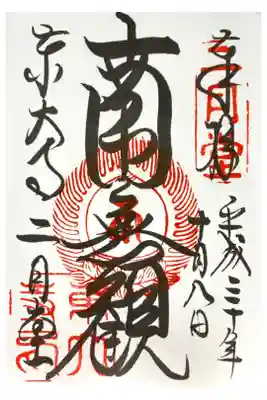 奉拝
平成三十年
十月八日
南無観
東大寺二月堂